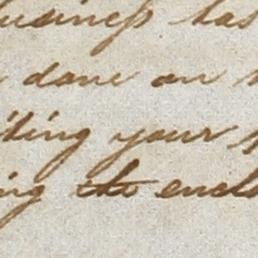 business has
done on
iting your
ing the encl